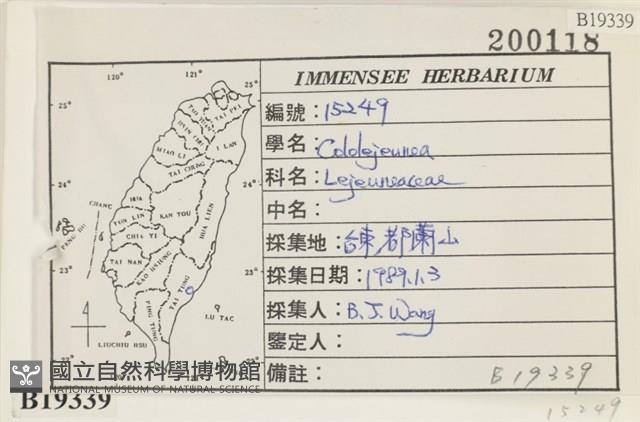 B19339
200118
IMMENSEE HERBARIUM
編號：15249
學名：Cololejeunea
科名：Lejeuneaceae
中名：
採集地：台東都蘭山
採集日期：1989.1.3
採集人：B.J. Wang
鑒定人：
備註：
B19339
15249
120°
121°
25°
25°
24°
24°
23°
23°
TAI PEI
I LAN
MIAO LI
TAI CHUNG
CHANG
HUA
NAN TOU
YUN LIN
CHIA YI
HUA LIEN
PENG HU
TAI NAN
KAO HSIUNG
TAI TUNG
PING TUNG
LU TAO
LIUCHIU HSU
國立自然科學博物館
NATIONAL MUSEUM OF NATURAL SCIENCE
B19339